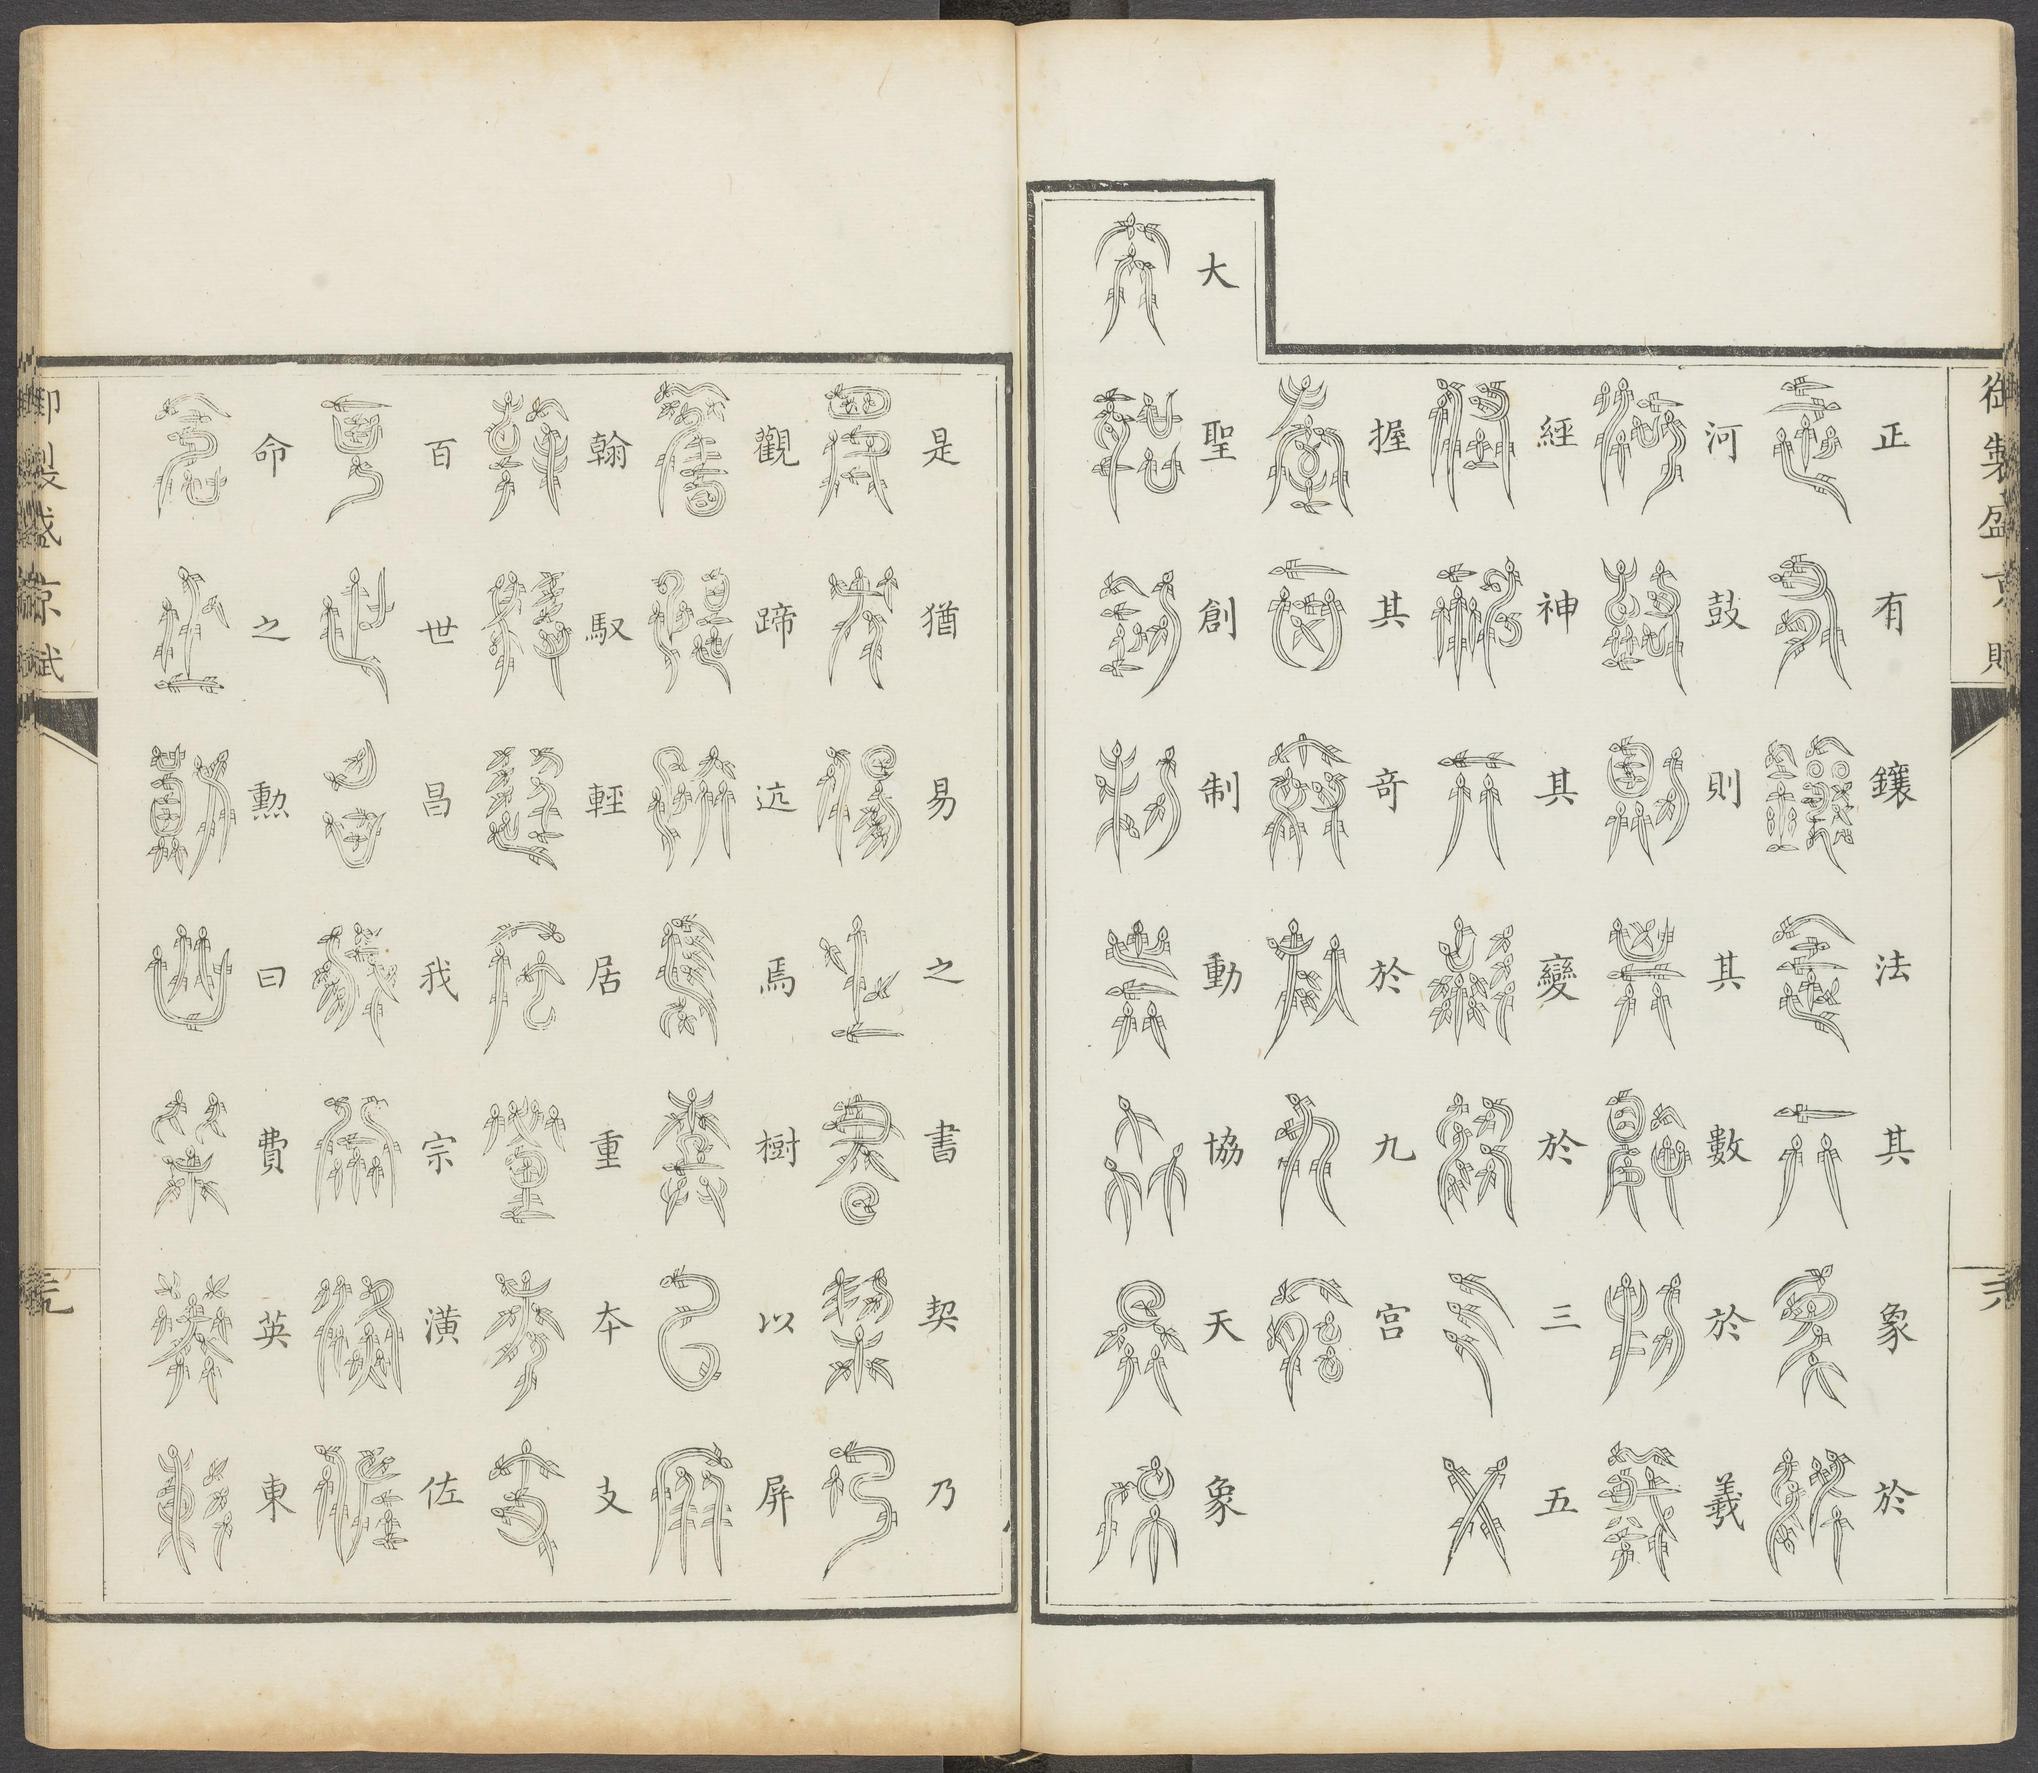 御製盛京賦
正有鑲法其象於
河鼓則其數於羲
經神其變於三五
握其奇於九宮
大聖創制動協天象
是猶易之書契乃
觀蹄迒焉樹以屏
翰馭輕居重本支
百世昌我宗潢佐
命之勲曰費英東
御製盛京賦